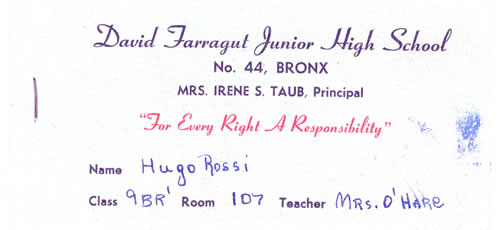 David Farragut Junior High School
No. 44, BRONX
MRS. IRENE S. TAUB, Principal
"For Every Right A Responsibility"
Name Hugo Rossi
Class 9BR' Room 107 Teacher MRS. O'HARE